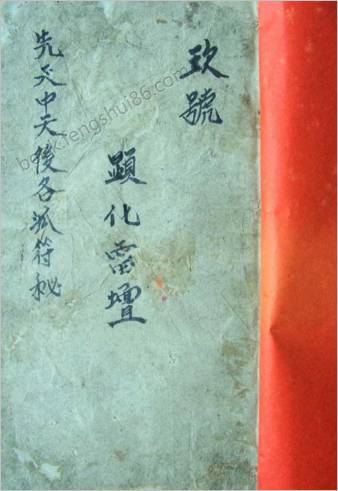 玖號
顕化雷壇
先天中天後各派符秘
book.fengshui86.com